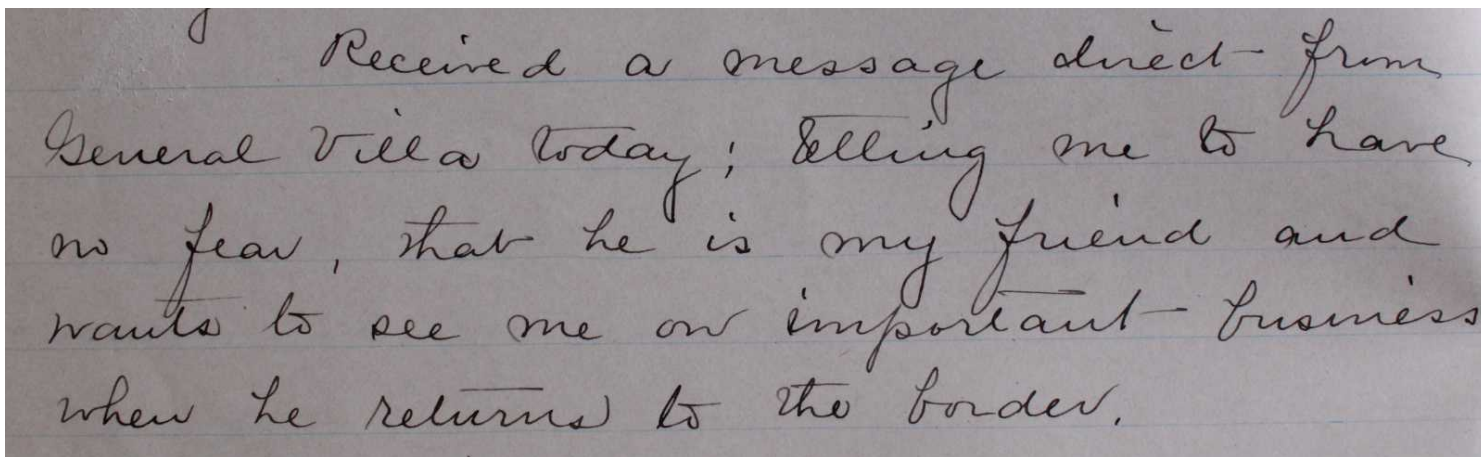 Received a message direct from
General Villa today; telling me to have
no fear, that he is my friend and
wants to see me on important business
when he returns to the border.